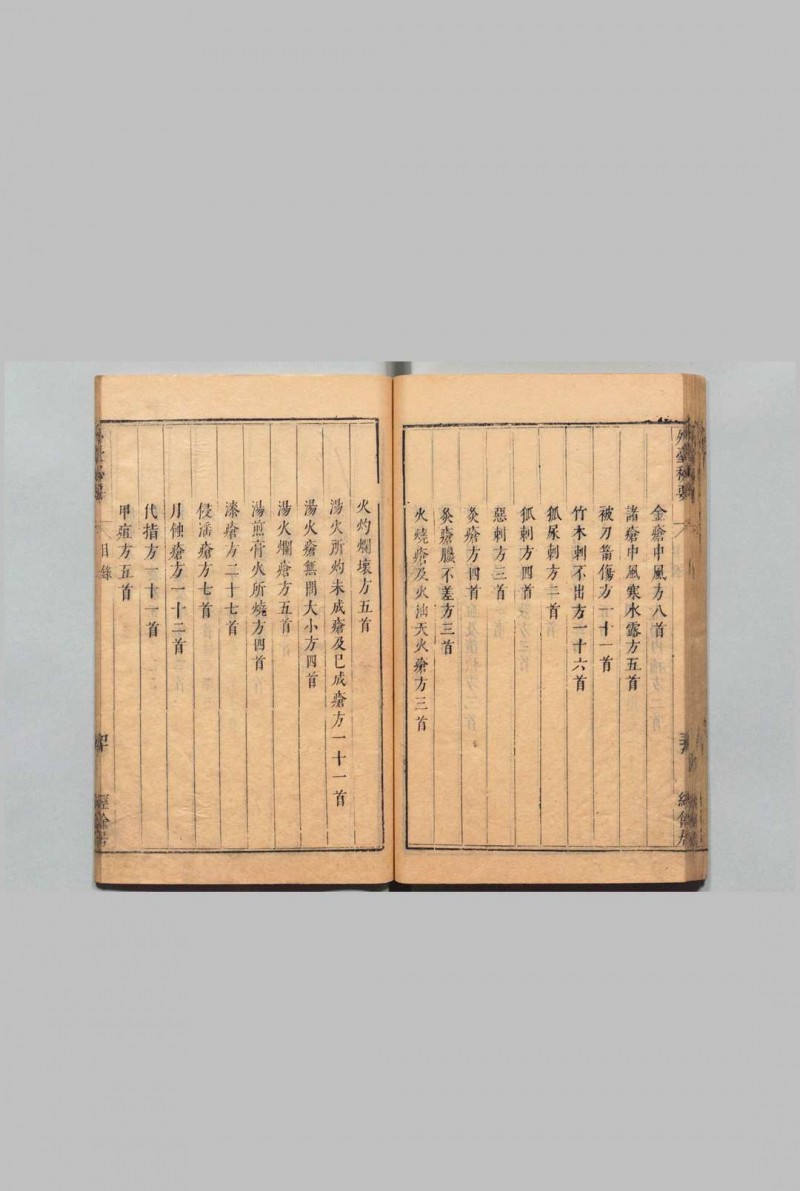 金瘡中風方八首
諸瘡中風寒水露方五首
被刀箭傷方一十一首
竹木刺不出方一十六首
狐尿刺方二首
狐刺方四首
惡刺方三首
灸瘡方四首
灸瘡膿不差方三首
火燒瘡及火油天火瘡方三首
火灼爛壞方五首
湯火所灼未成瘡及已成瘡方一十一首
湯火瘡無問大小方四首
湯火爛瘡方五首
湯煎膏火所燒方四首
漆瘡方二十七首
侵淫瘡方七首
月蝕瘡方一十二首
代指方一十一首
甲疽方五首
目錄